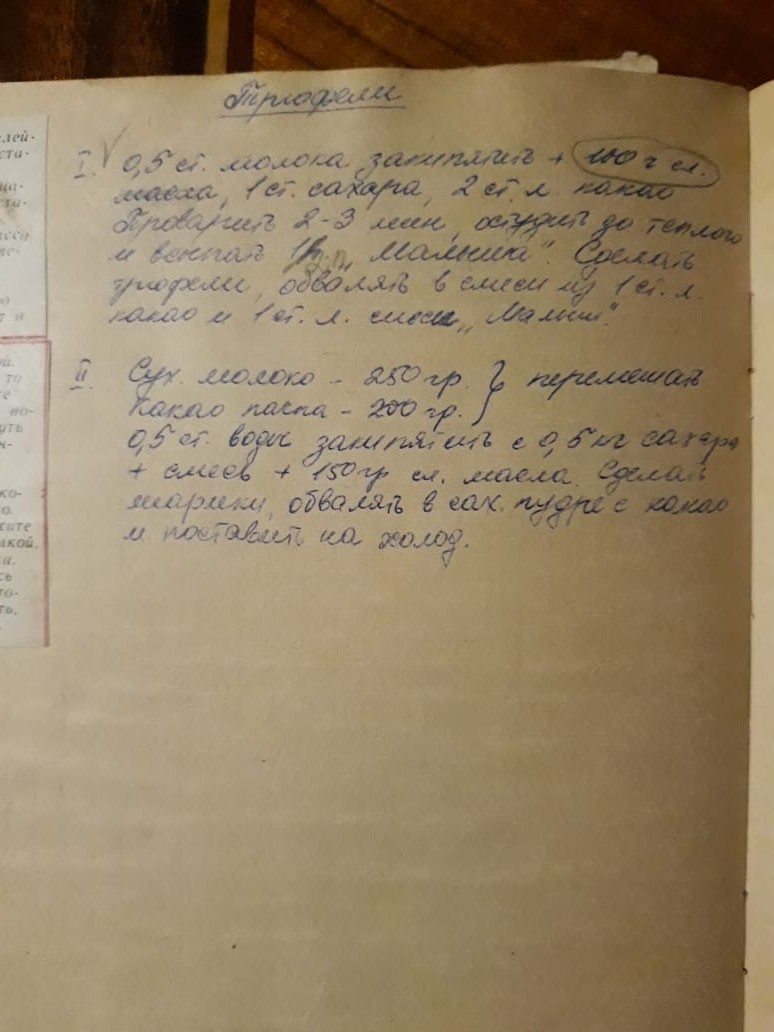 Трюфели
I. 0,5 ст. молока закипятить + 100 г сл.
масла, 1 ст. сахара, 2 ст. л. какао
Проварить 2-3 мин, остудить до теплого
и всыпать 1 „Малыши". Сделать
трюфели, обвалять в смеси из 1 ст. л.
какао и 1 ст. л. смеси „Малыш".
II. Сух. молоко - 250 гр. } перемешать
Какао паста - 200 гр.
0,5 ст. воды закипятить с 0,5 кг сахара
+ смесь + 150 гр сл. масла. Сделать
шарики, обвалять в сах. пудре с какао
и поставить на холод.